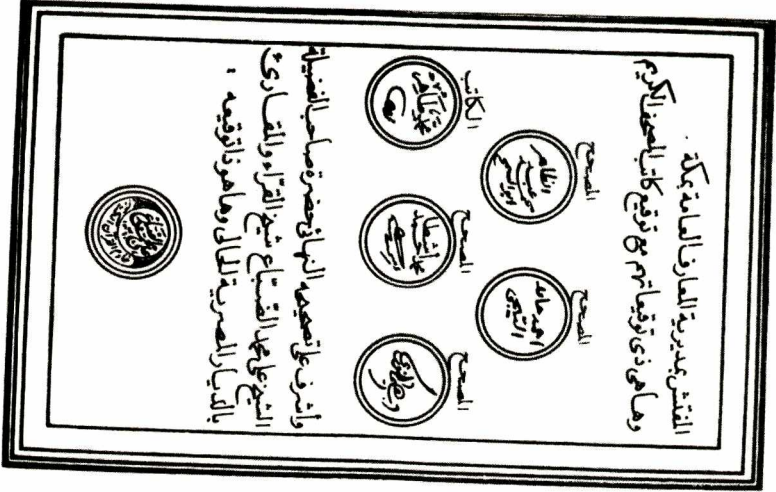 المفتش بمديرية المعارف العامة بمكة .
وها هى ذى توقيعاتهم مع توقيع كاتب المصحف الكريم
المصحح
المصحح
احمد حامد
التيجى
الكاتب
محمد طاهر
المصحح
المصحح
وأشرف على تصحيحه النهائى حضرة صاحب الفضيلة
الشيخ على محمد الضباع شيخ القراء والمقارئ
بالديار المصرية الحالى وها هو ذا توقيعه :